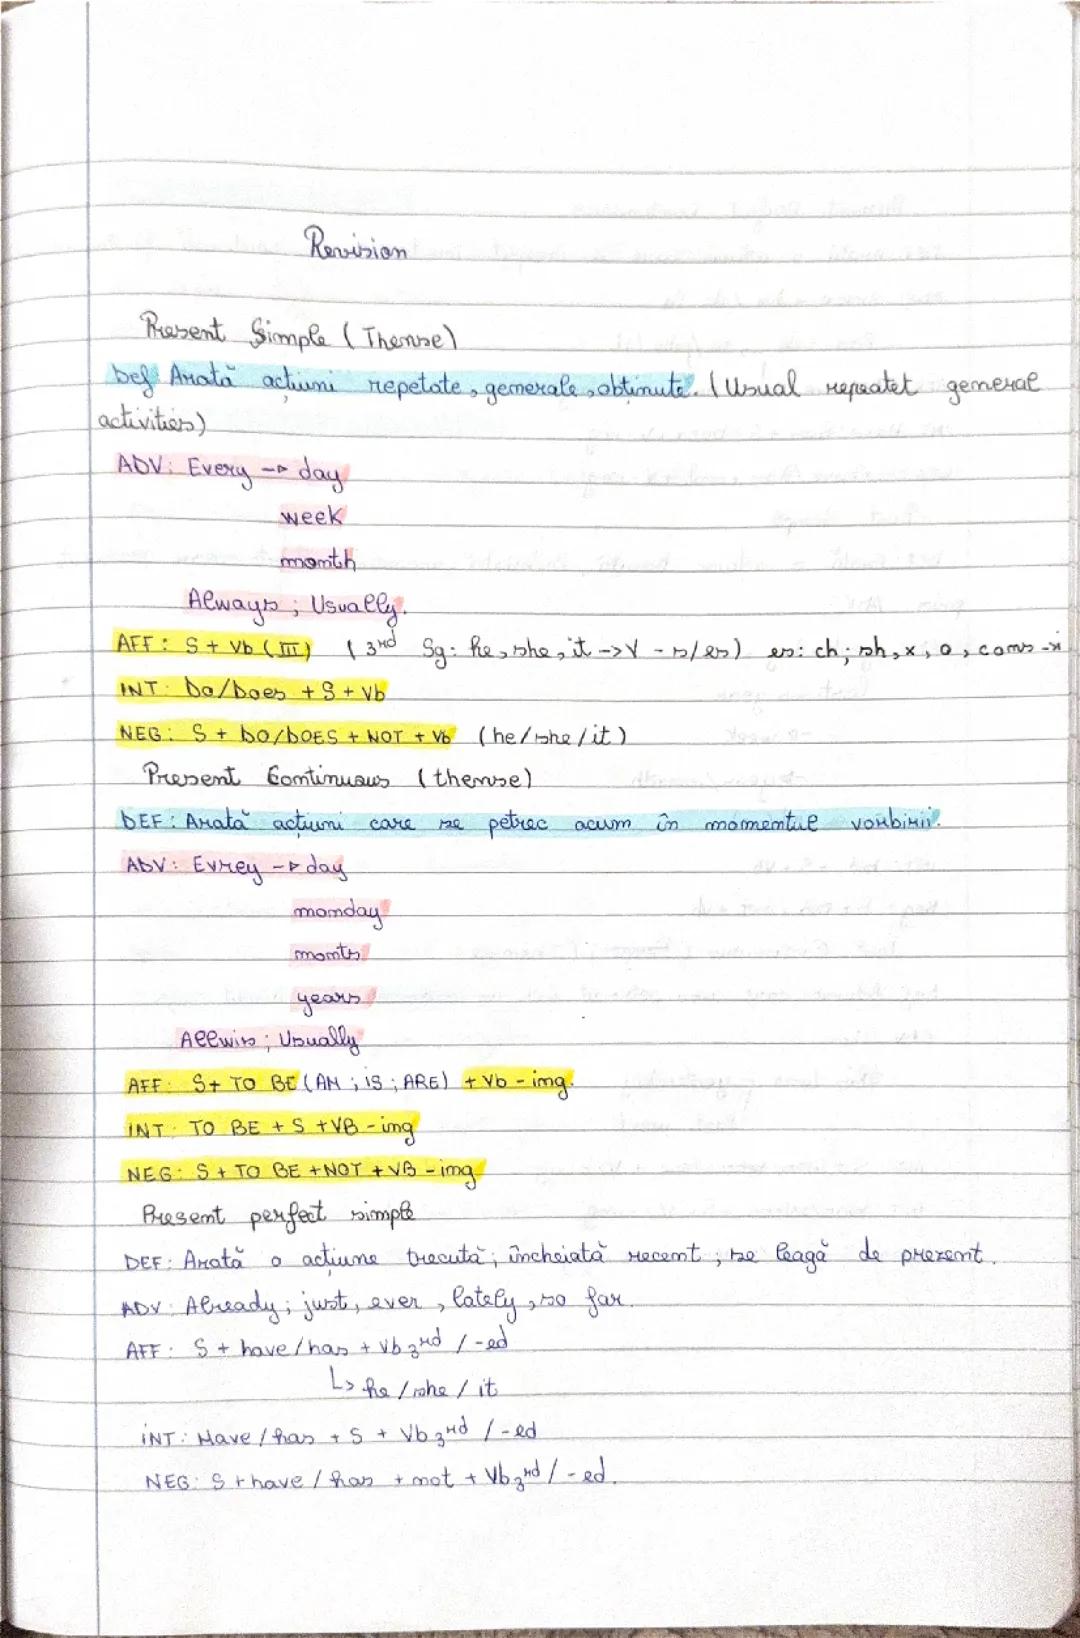 Revision
Present Simple (Thense)
Def: Arată acțiuni repetate, generale, obtinute. (Usual repeatet general
activities)
ADV: Every → day
week
month
Always ; Usually.
AFF: S + Vb (III) (3rd Sg: he, she, it → V - s/es) es: ch; sh, x, o, cons -
INT: Do/Does + S + Vb
NEG: S + DO/DOES + NOT + Vb (he/she/it)
Present Continuous (thense)
DEF: Arată acțiuni care se petrec acum în momentul vorbirii.
ADV: Evrey → day
monday
months
years
Allwis ; Usually
AFF: S+ TO BE (AM ; IS ; ARE) + Vb - ing.
INT: TO BE + S + VB - ing
NEG: S + TO BE + NOT + VB - ing
Present perfect simple
DEF: Arată o acțiune trecută; încheiată recent ; se leagă de prezent.
ADV: Already; just, ever, lately, so far.
AFF: S + have/has + Vb 3rd / -ed
↳ he / she / it
INT: Have / has + S + Vb 3rd / -ed
NEG: S + have / has + not + Vb 3rd / -ed.